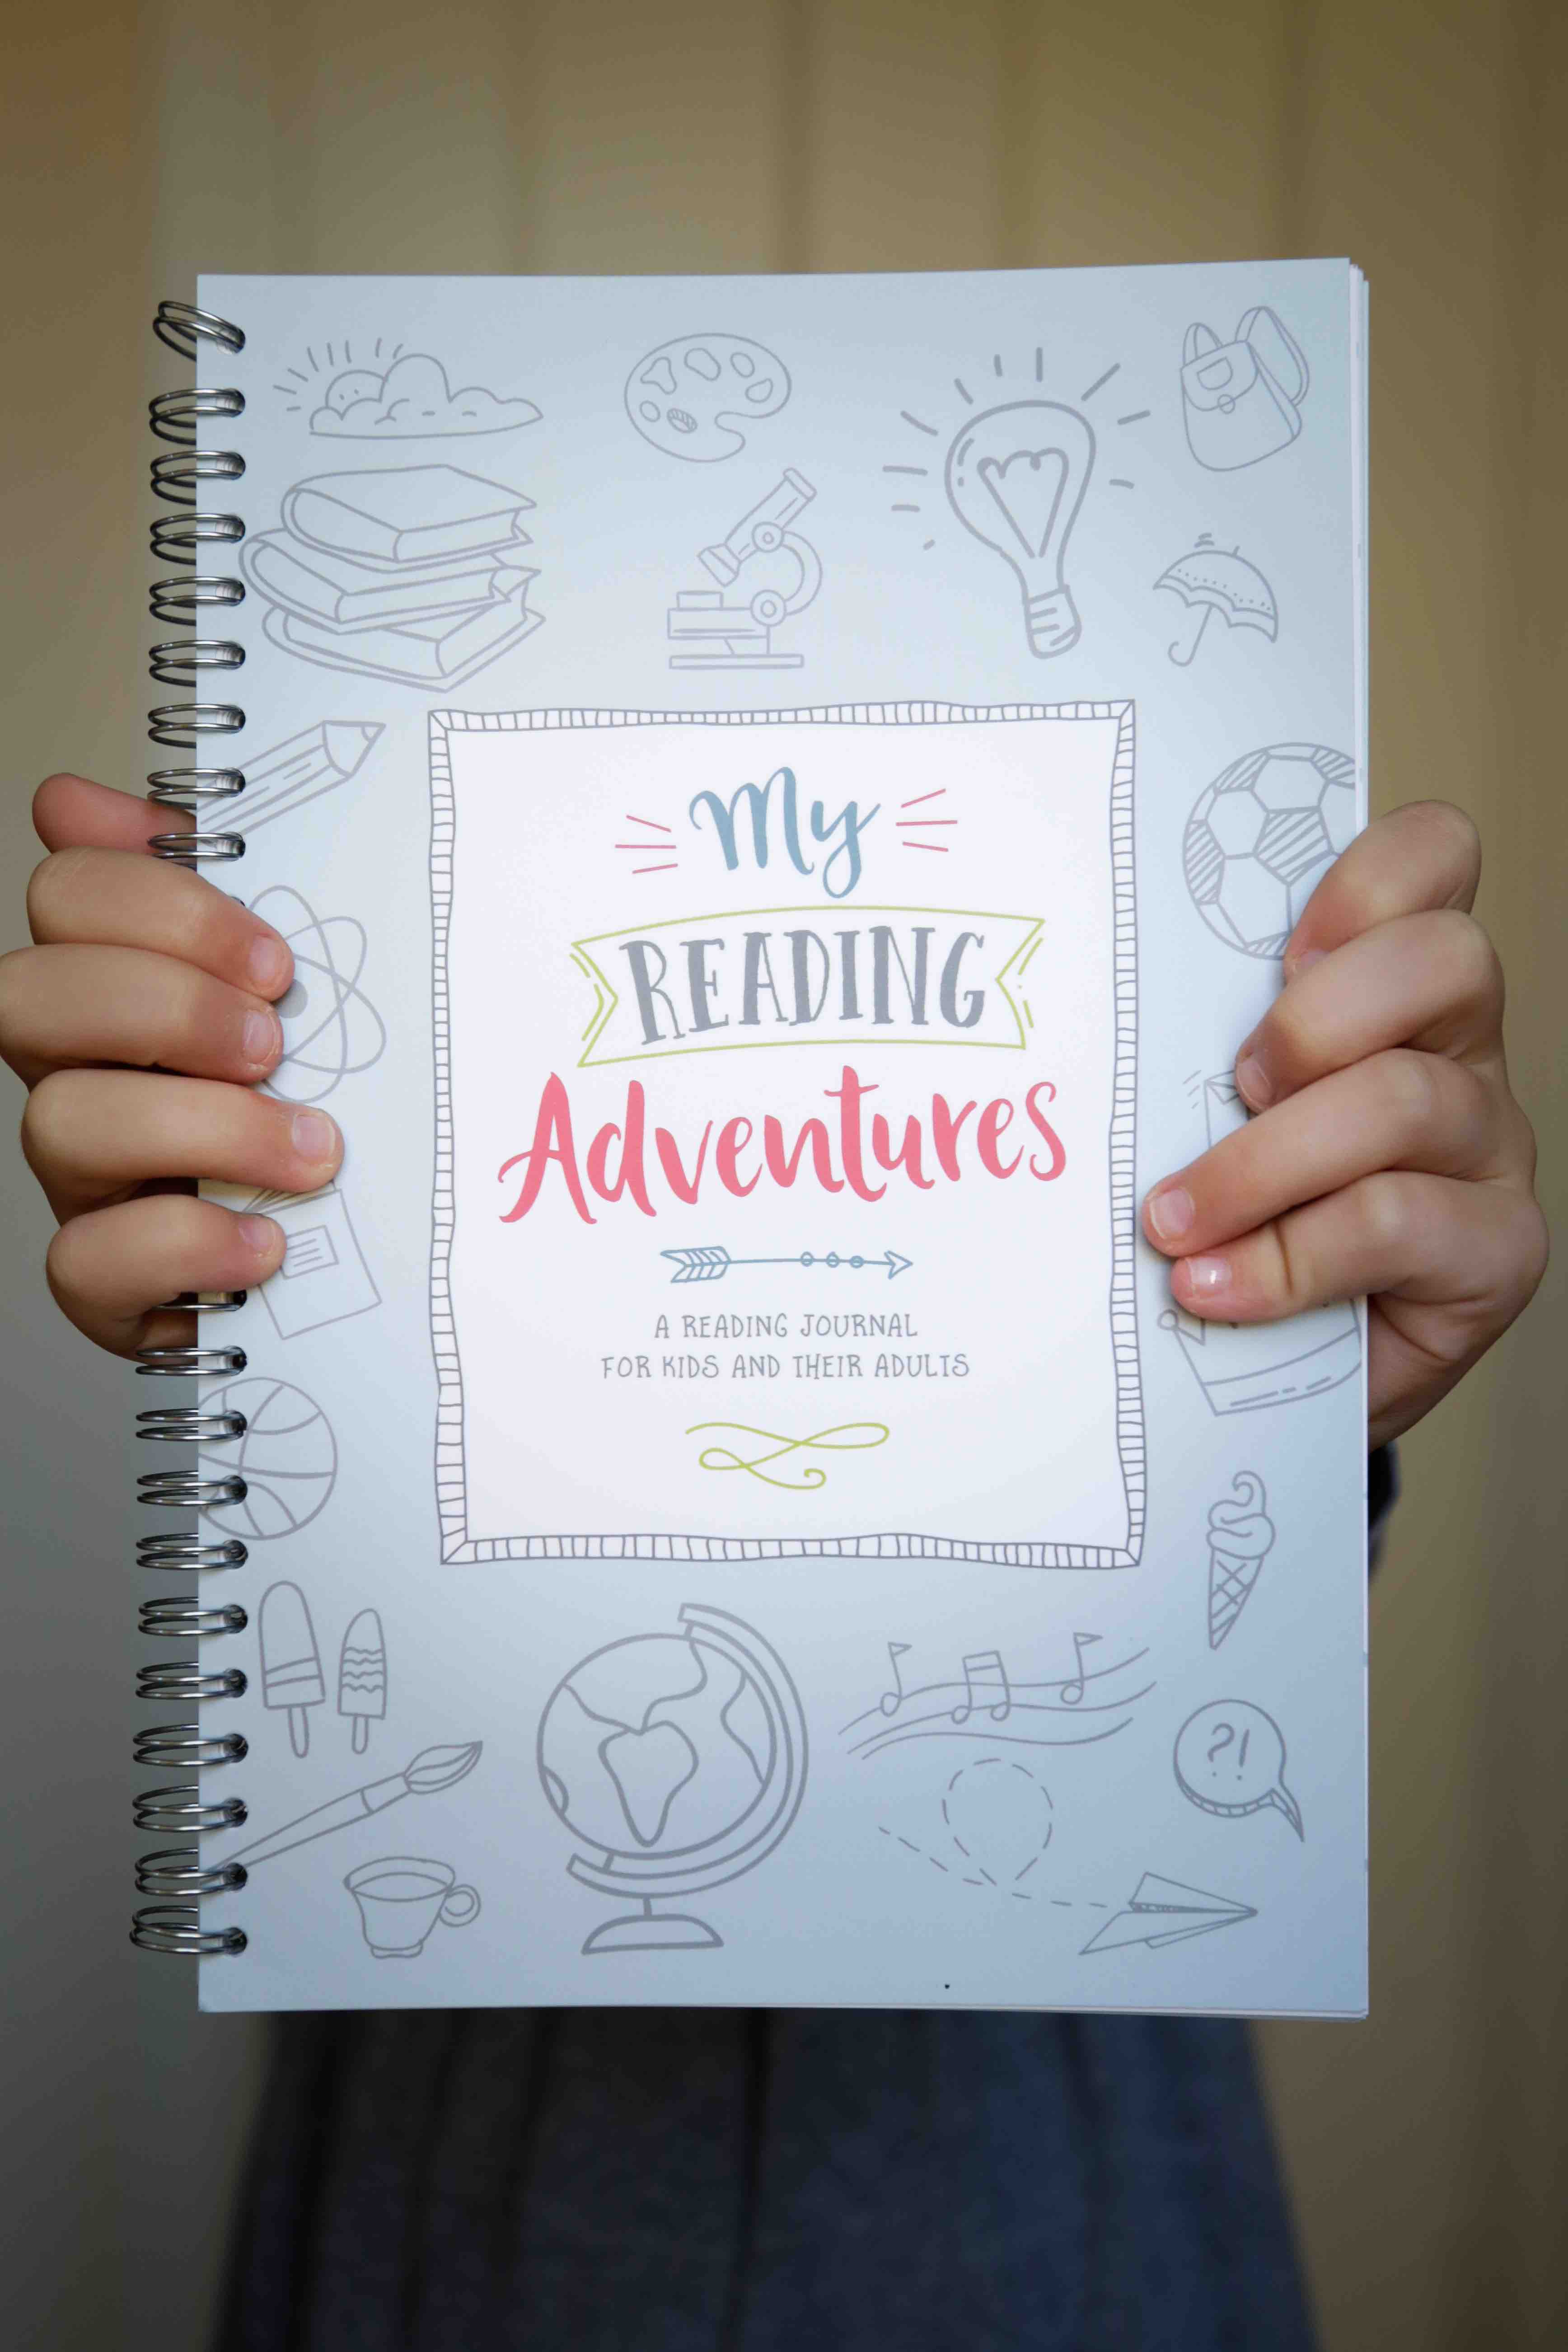 My
READING
Adventures
A READING JOURNAL
FOR KIDS AND THEIR ADULTS
?!